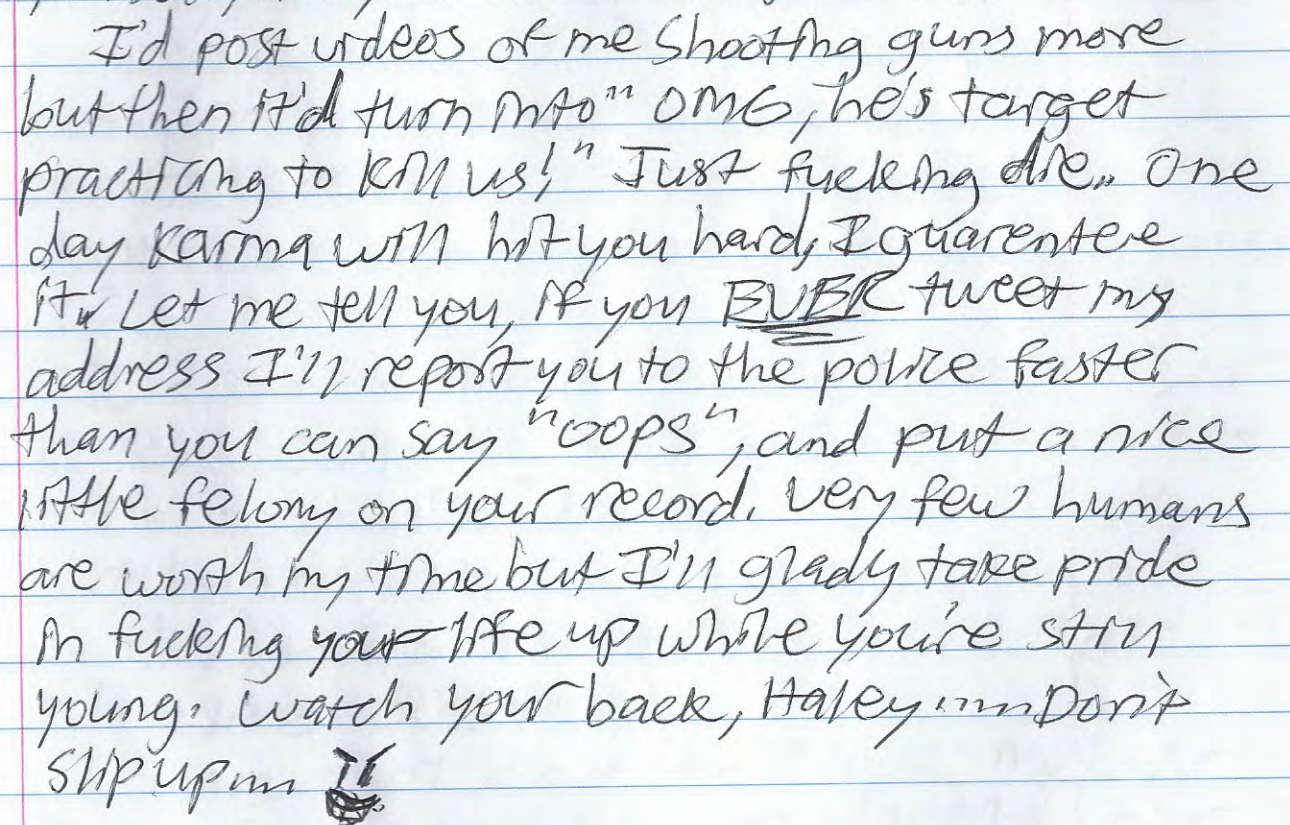 I'd post videos of me shooting guns more
but then it'd turn into "OMG, he's target
practicing to kill us!" Just fucking die.. One
day karma will hit you hard, I guarentee
it.. Let me tell you, if you EVER tweet my
address I'll report you to the police faster
than you can say "oops", and put a nice
little felony on your record. Very few humans
are worth my time but I'll glady take pride
in fucking your life up while you're still
young. Watch your back, Haley..... Don't
slip up....